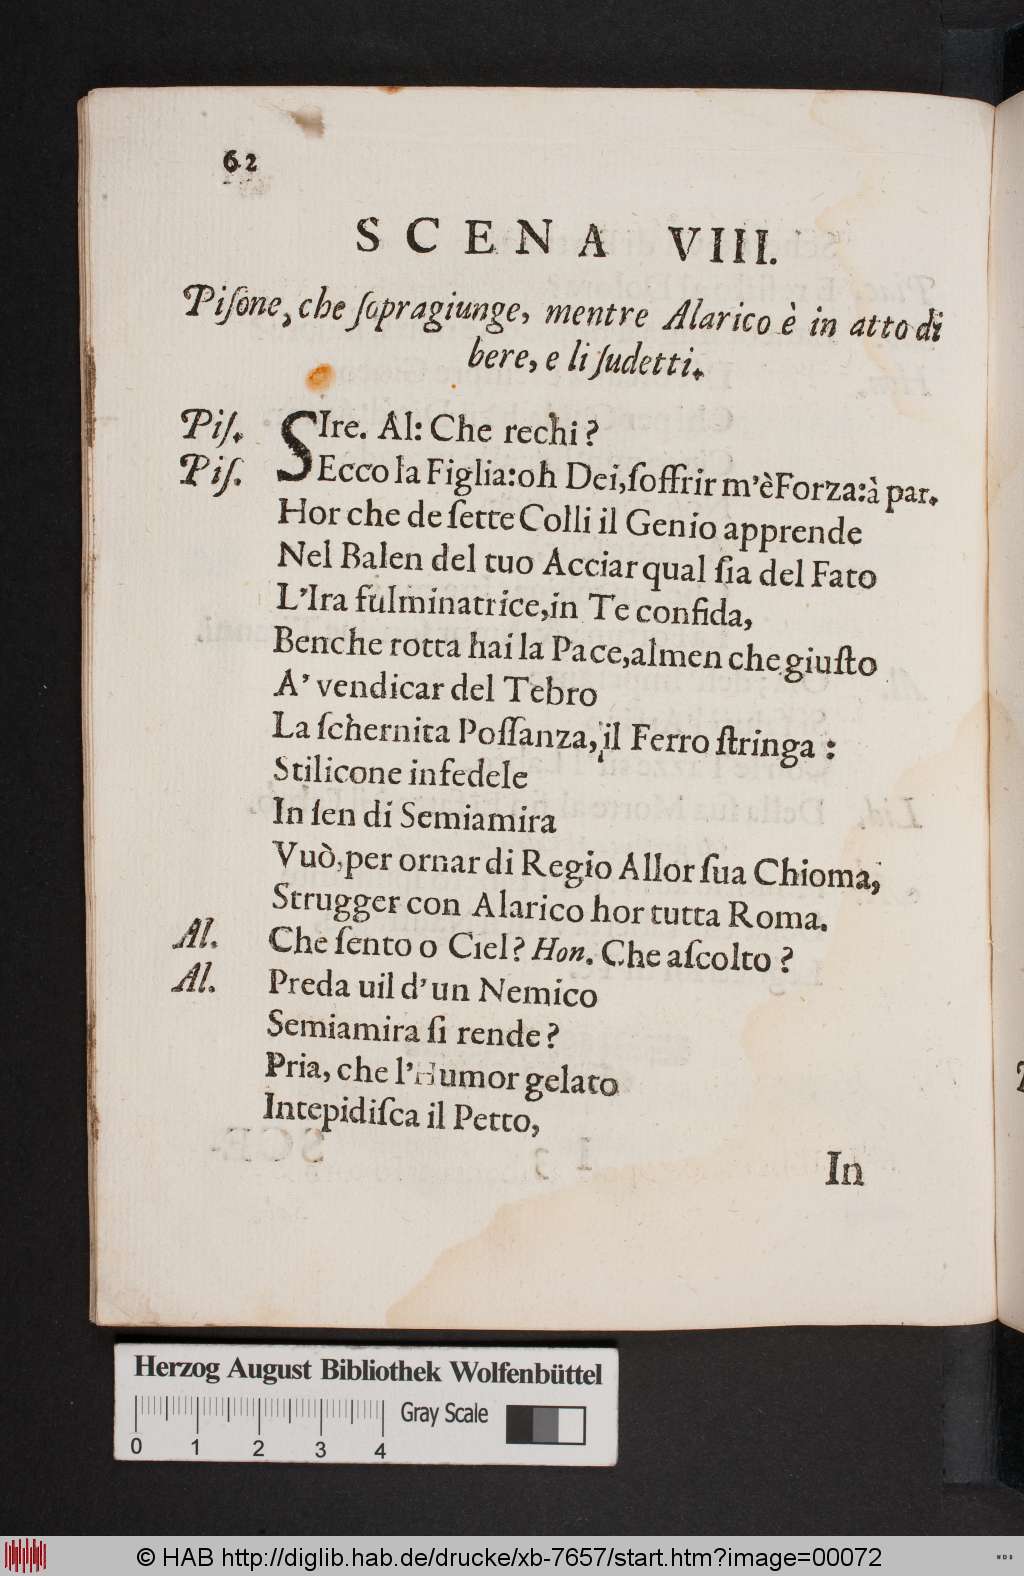 62
SCENA VIII.
Piſone, che ſopragiunge, mentre Alarico è in atto di
bere, e li ſudetti.
Piſ. SIre. Al: Che rechi?
Piſ. Ecco la Figlia: oh Dei, ſoffrir m'è Forza: à par.
Hor che de ſette Colli il Genio apprende
Nel Balen del tuo Acciar qual ſia del Fato
L'Ira fulminatrice, in Te confida,
Benche rotta hai la Pace, almen che giuſto
A' vendicar del Tebro
La ſchernita Poſſanza, il Ferro ſtringa:
Stilicone infedele
In ſen di Semiamira
Vuò, per ornar di Regio Allor ſua Chioma,
Strugger con Alarico hor tutta Roma.
Al. Che ſento o Ciel? Hon. Che aſcolto?
Al. Preda uil d'un Nemico
Semiamira ſi rende?
Pria, che l'Humor gelato
Intepidiſca il Petto,
In
Herzog August Bibliothek Wolfenbüttel
0 1 2 3 4 Gray Scale
© HAB http://diglib.hab.de/drucke/xb-7657/start.htm?image=00072